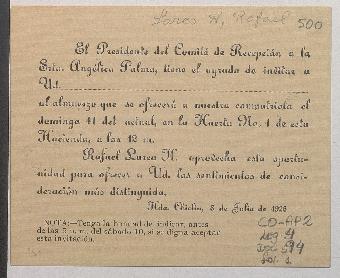 Larco H, Rafael 500
El Presidente del Comité de Recepción a la
Srta. Angélica Palma, tiene el agrado de invitar a
Ud.
al almuerzo que se ofrecerá a nuestra compatriota el
domingo 11 del actual, en la Huerta No. 1 de esta
Hacienda, a las 12 m.
Rafael Larco H. aprovecha esta oportu-
nidad para ofrecer a Ud. los sentimientos de consi-
deración más distinguida.
Hda. Chiclín, 5 de Julio de 1926
NOTA:—Tenga la bondad de indicar, antes
de las 5 p. m. del sábado 10, si se digna aceptar
esta invitación.
CO-AP2